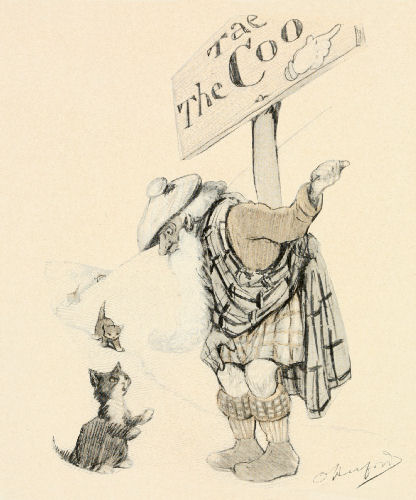 Tae
The Coo
O Herford